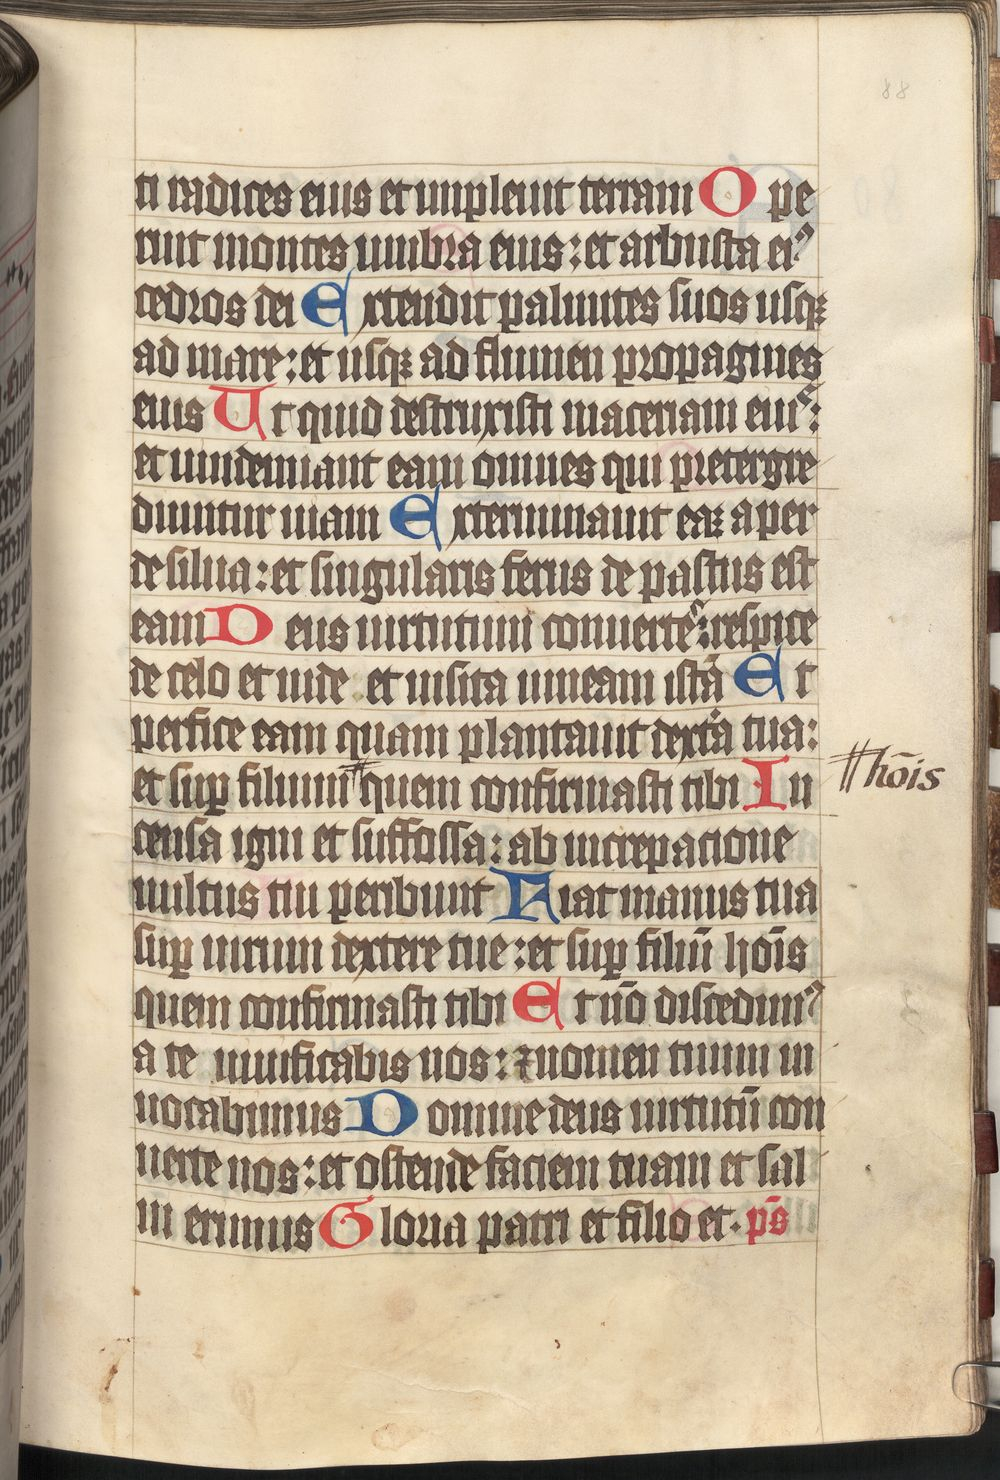 88
ti radices eius et impleuit terram O pe
ruit montes umbra eius : et arbusta eiꝰ
cedros dei E xtendit palmites suos usqꝫ
ad mare : et usqꝫ ad flumen propagines
eius U t quid destruxisti maceriam eiuˢ :
et uindemiant eam omnes qui pretergre
diuntur uiam E xterminauit eaꝫ aper
de silua : et singularis ferus de pastus est
eam D eus uirtutum conuerteˢ : respice
de celo et uide et uisita uineam istā E t
perfice eam quam plantauit dext̄a tua :
et suꝑ filium ⧧ quem confirmasti tibi I n
⧧ hōis
censa igni et suffossa : ab increpacione
uultus tui peribunt F iat manus tua
suꝑ uirum dextere tue : et suꝑ filiū hōis
quem confirmasti tibi E t nō discedimꝰ
a te uiuificabis nos : ⁊ nomen tuum in
uocabimus D omine deus uirtutū con
uerte nos : et ostende faciem tuam et sal
ui erimus G loria patri et filio et · pˢ̄